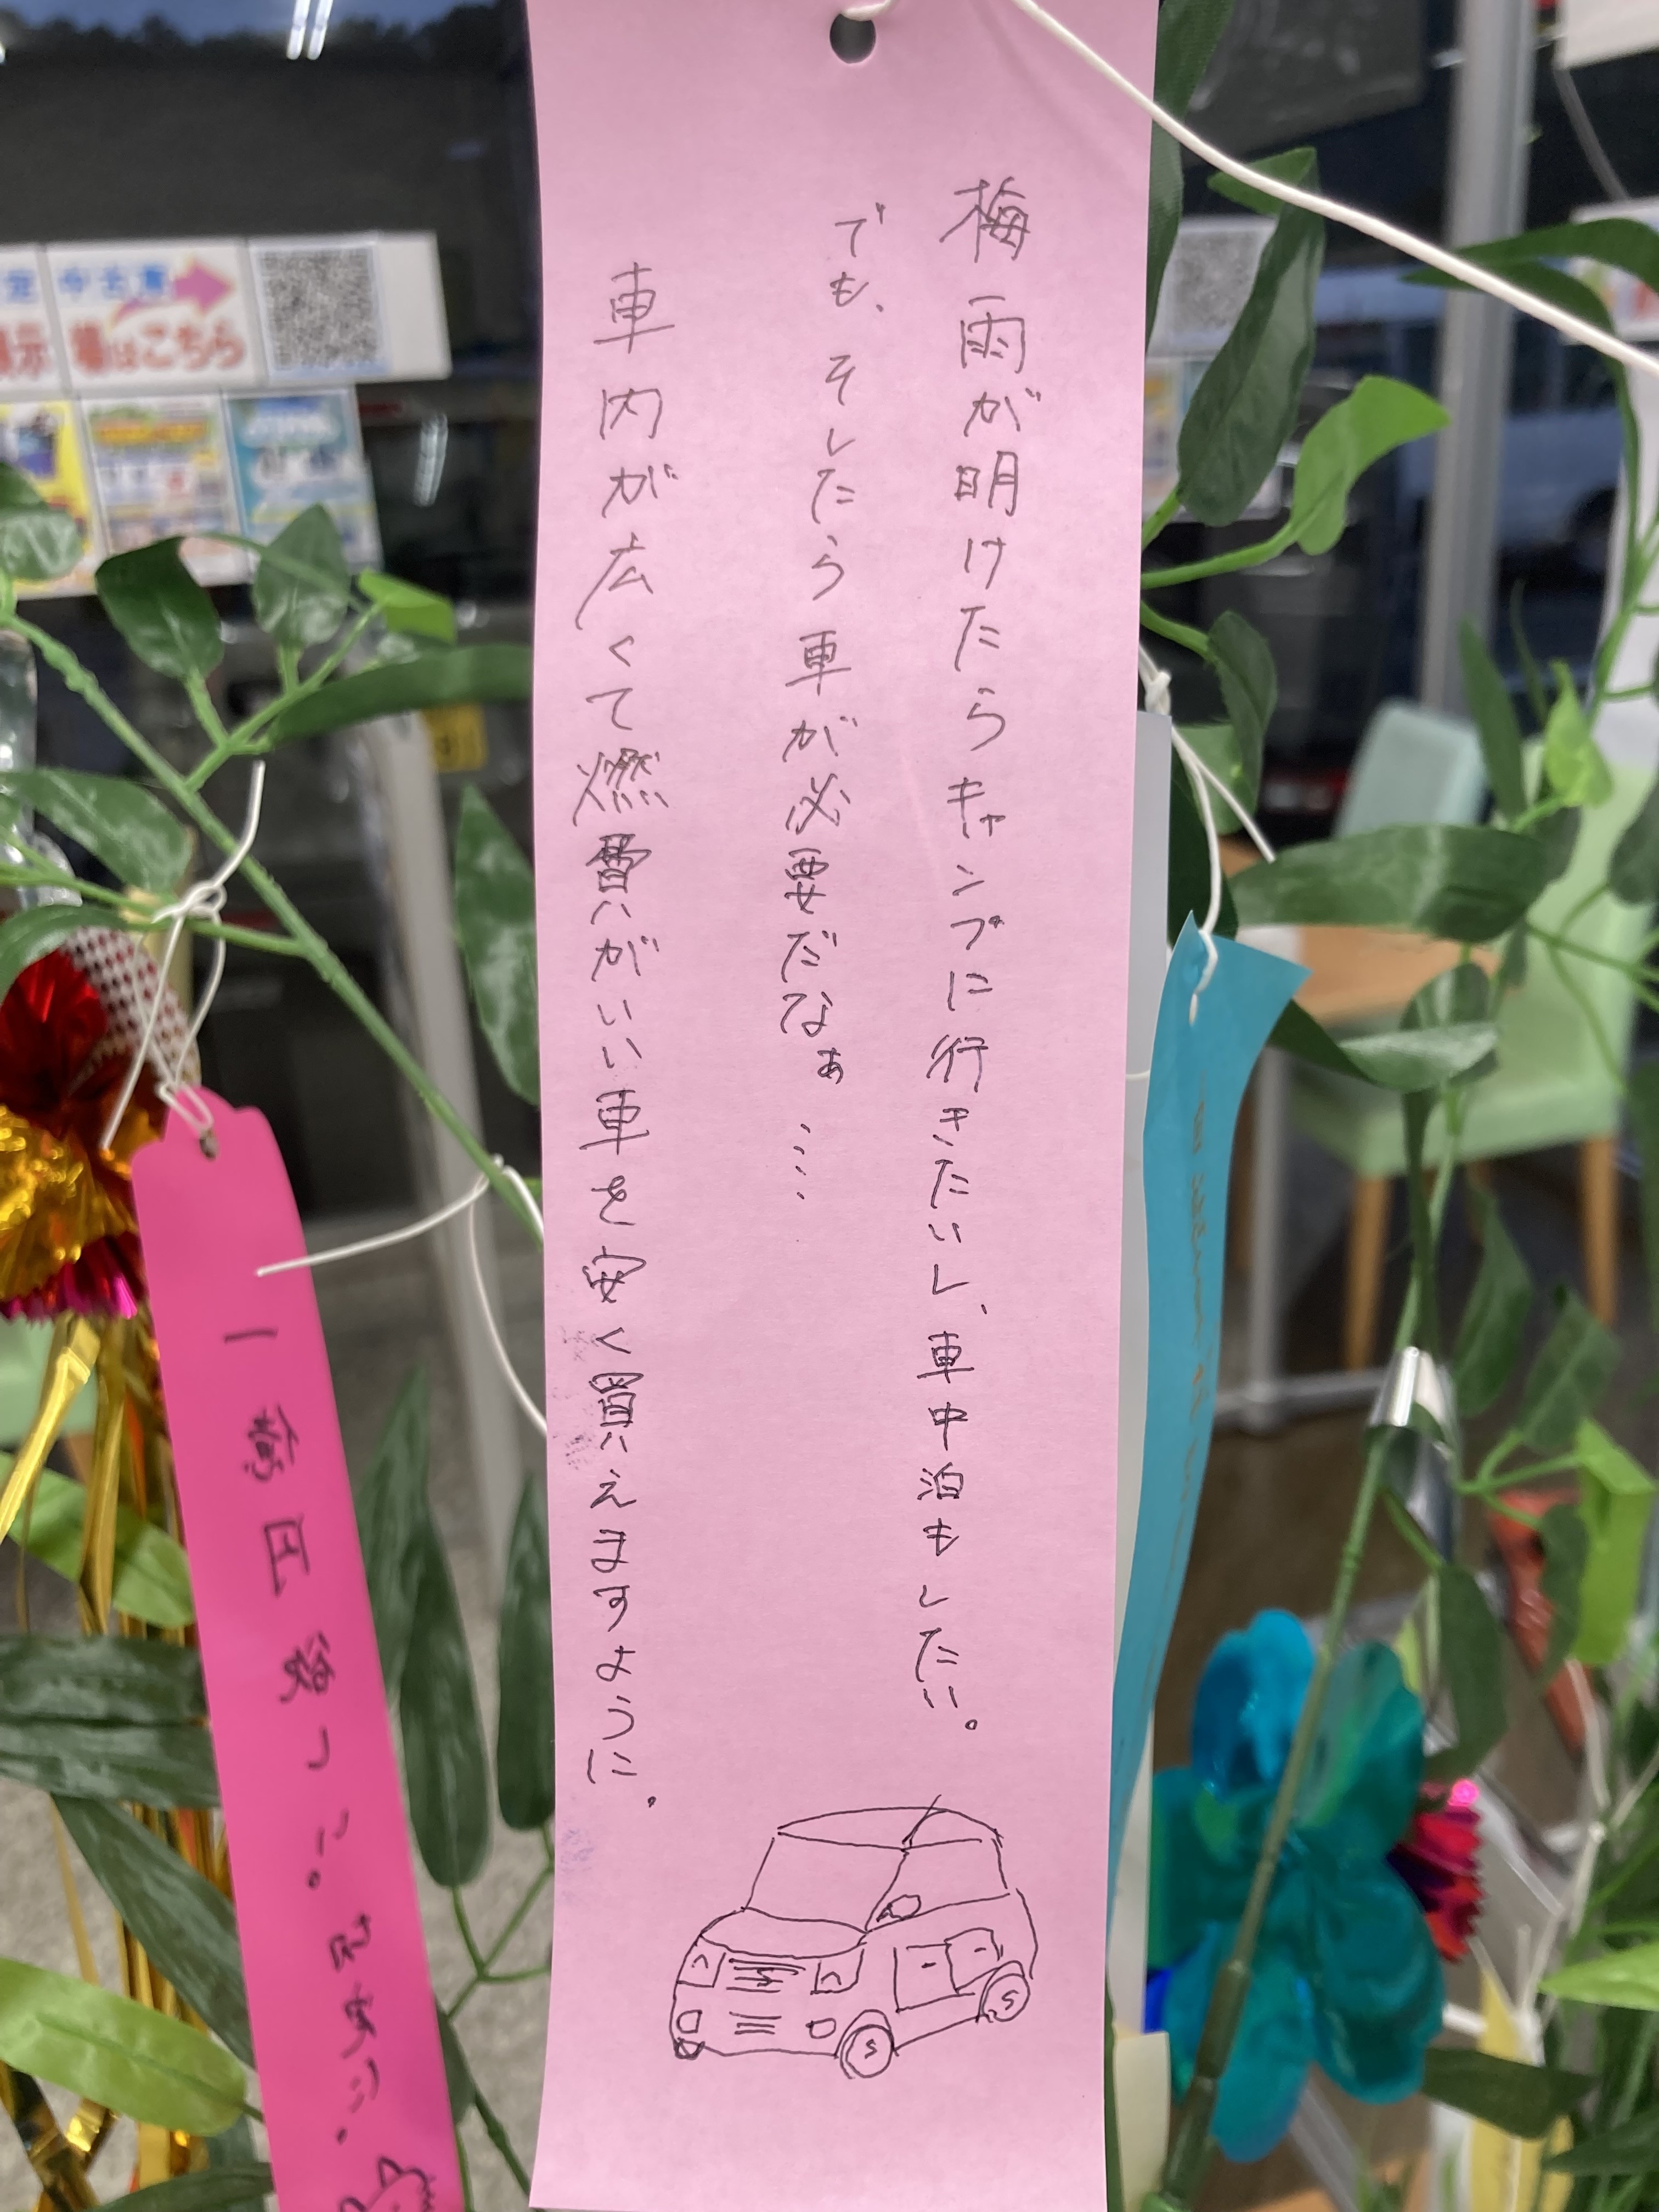 梅雨が明けたらキャンプに行きたいし、車中泊もしたい。
でも、そしたら車が必要だなぁ……
車内が広くて燃費がいい車を安く買えますように。
一億円欲しい。切実に。
中古車
場はこちら
示